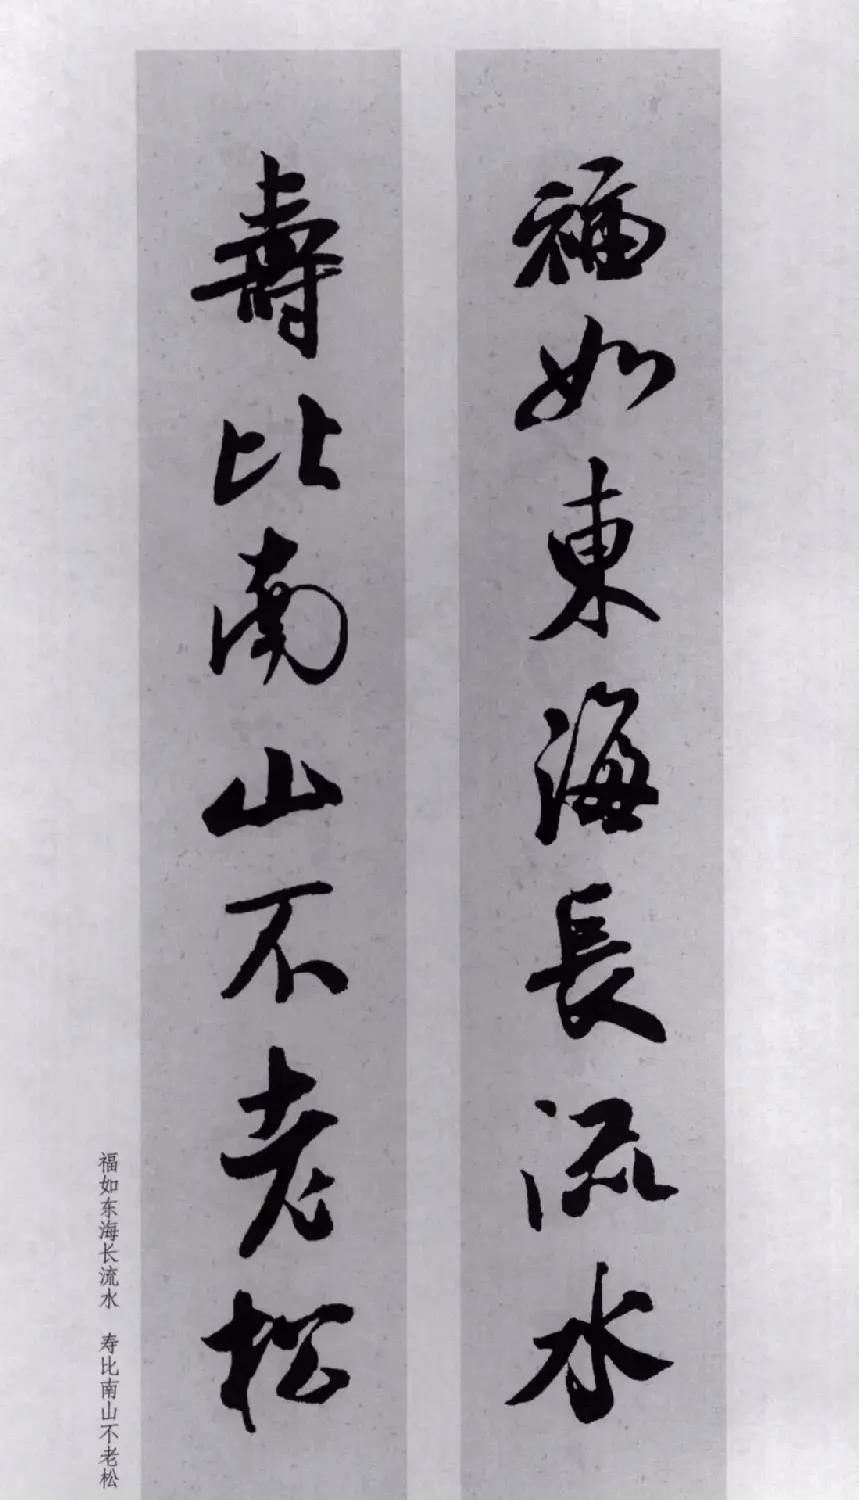 福如東海長流水
壽比南山不老松
福如东海长流水 寿比南山不老松